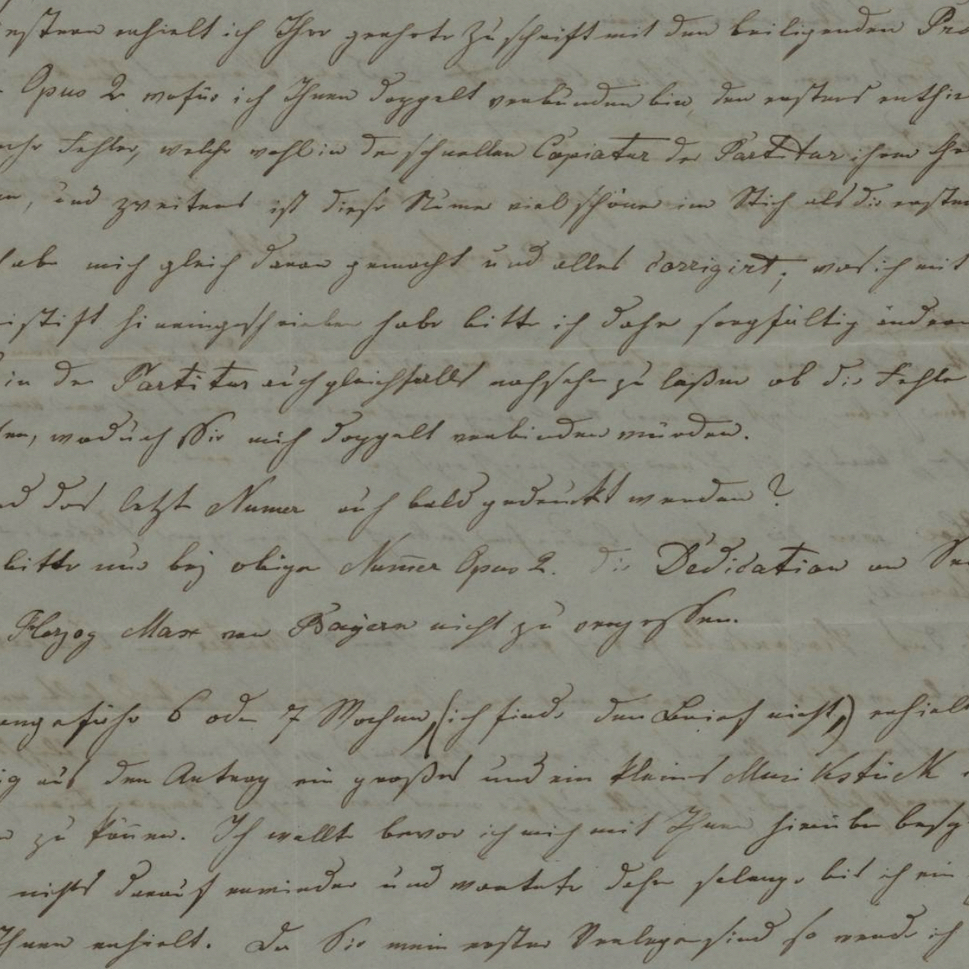 estern erhielt ich Ihre geehrte Zuschrift mit den beiligenden Pro
Opus 2 wofür ich Ihnen doppelt verbunden bin, den erstens enthie
ehr Fehler, welche wohl in der schnellen Copiatur der Partitur ihren
en, und zweitens ist diese Nume viel schöner im Stich als die ersten
habe mich gleich daran gemacht und alles corrigirt, was ich mit
eistift hineingeschrieben habe bitte ich daher sorgfältig ändern
in der Partitur auch gleichfalls nachsehen zu laßen ob die Fehler
ten, wodurch Sie mich doppelt verbinden würden.
rd das letzte Numer auch bald gedruckt werden?
bitte nur bej obiger Numer Opus 2. die Dedication an Se
Herzog Max von Bayern nicht zu vergessen.
ungefähr 6 oder 7 Wochen, (ich finde den Brief nicht,) erhielt
ig aus den Antrag ein großes und ein kleines Musikstück
n zu können. Ich wollte bevor ich mich mit Ihnen hierüber besp
nichts darauf erwieder und wartete daher solange bis ich ein
Ihnen erhielt. Da Sie mein erster Verleger sind so werde ich